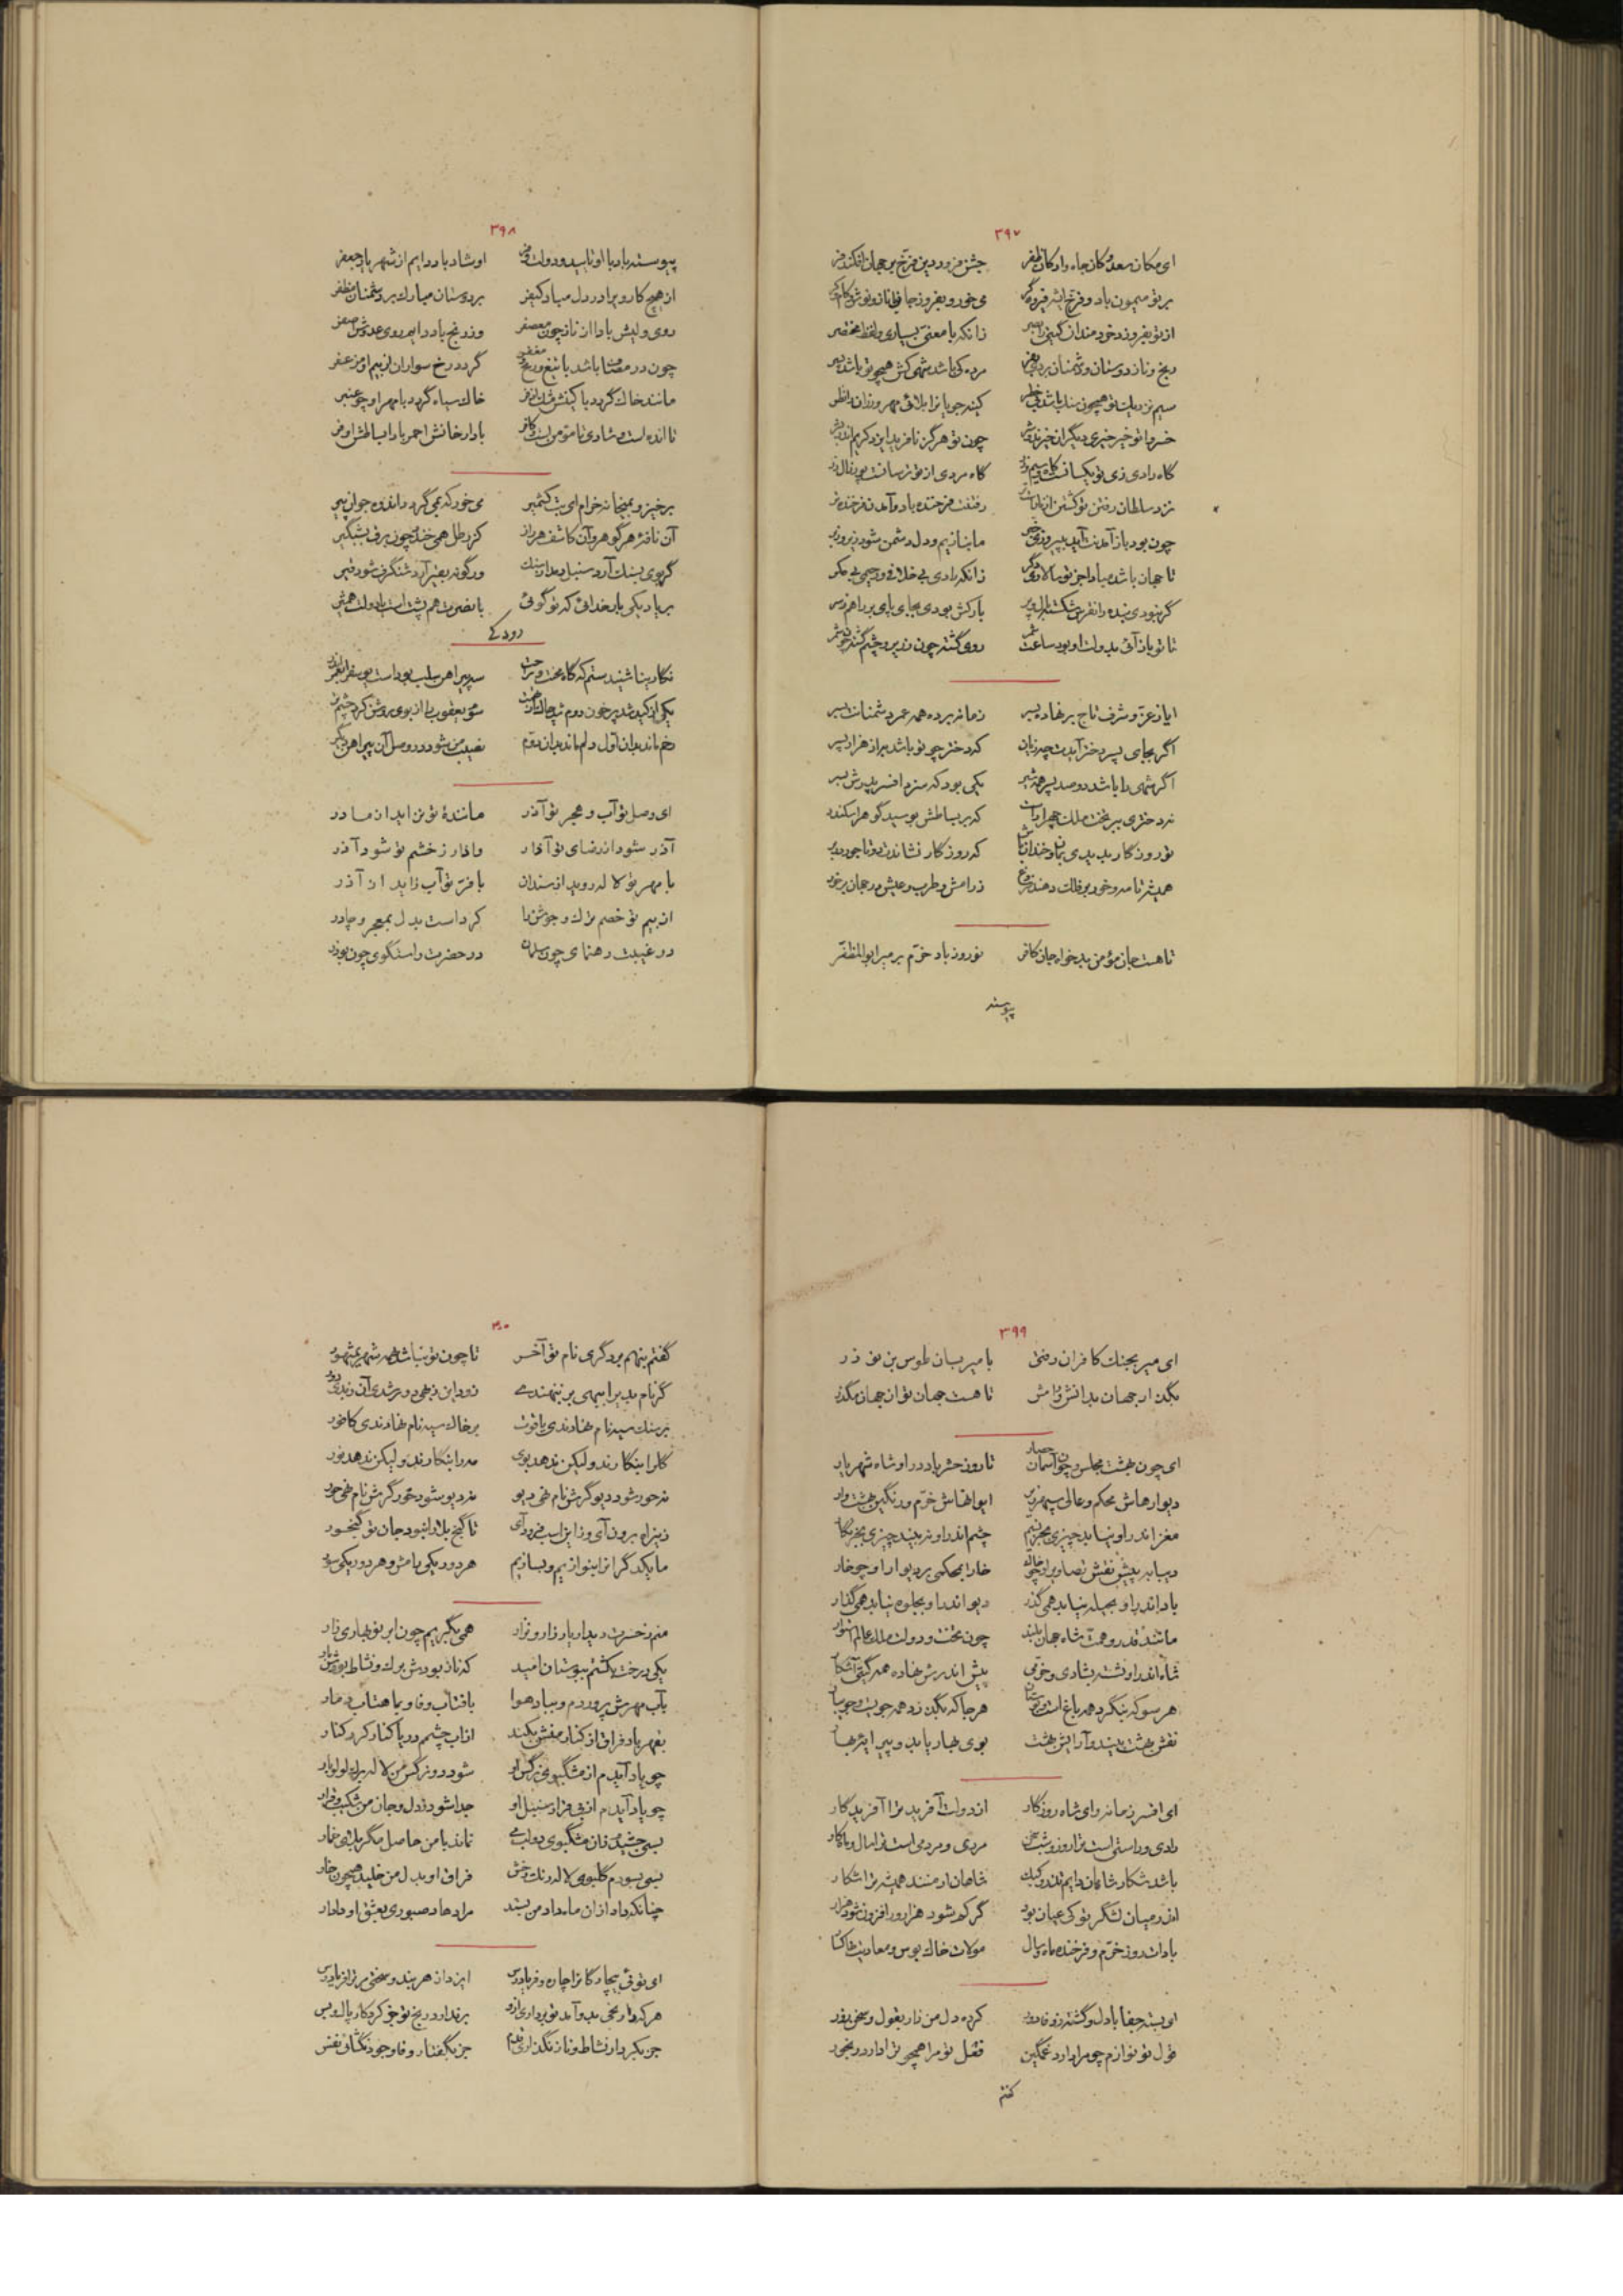 ۳۹۷
ای مکان سعد و کان جاه و ارکان ظفر جشن فروردین فرخ بر جهان افکند فر
بر تو میمون باد و فرخ می خور و بفروز جان
از تو بفروزد خردمندان گیتی را بصر زانکه با معنی بسیاری و لفظ مختصر
رنج و ناز دوستان و دشمنان
سیم نزدیک تو همچون سنگ باشد بی خطر
گاه رادی زی تو یکسانست گاه مردی از تو ترسانست پور زال زر
نزد سلطان رفتن تو رفتنت فرخنده باد و آمدن فرخنده تر
چون بود باز آمدنت آید ما بنازیم و دل دشمن شود زیر و زبر
تا جهان باشد مبادا جز تو سالار زانکه رادی بی خلافی و رحیمی بی مگر
تا تو باز آئی بدولت او بود ساعت شمر روی گشته چون زریر و چشم گشته
ایا ز عز و شرف تاج بر نهاده بسر زمانه برده همه عمر دشمنانت بسر
اگر بجای پسر دختر آیدت چه زیان که دختر چو تو باشد به از هزار پسر
اگر شهی را باشد دو صد پسر یکی بود که سزد افسر پدرش بسر
نه دختری ببر تخت ملک که بر بساطش بوسید گوهر اسکندر
همیشه تا مه و خور بر فلک دهند فروغ ز رامش و طرب و عیش در جهان برخور
تا هست جان مؤمن بدخواه جان کافر نوروز باد خرم بر میر ابوالمظفر
پیوسته
۳۹۸
پیوسته باد با او تایید و دولت و فر او شاد باد دایم از شهریار جعفر
از هیچ کار ویرا در دل مباد کیفر بر دوستان مبارک بر دشمنان مظفر
روی ولیش بادا از ناز چون معصفر وز رنج باد دایم روی عدوش اصفر
چون در مصاف باشد با تیغ و درع و مغفر گردد رخ سواران از بیم او مزعفر
مانند خاک گردد با کینش مشک اذفر خاک سیاه گردد با مهر او چو عنبر
تا انده است و شادی تا مؤمن است و کافر بادا رخانش احمر بادا بساطش اوفر
برخیز و بمیخانه خرام ای بت کشمیر می خور که بمی گردد اندوه جوان پیر
گر بوی بسنگ آرد سنبل دمد از سنگ ور گونه بقیر آرد شنگرف شود قیر
بر یاد یکی بار خدائی که تو گوئی با نصرت هم پشت است با دولت همشیر
رودکی
نگارینا شنیدستم که گاه محنت و راحت سه پیراهن سلب بوده است یوسف را بعمر اندر
یکی از کید شد پر خون دوم شد چاک از تهمت سوم یعقوب را از بوی روشن کرد چشم تر
رخم ماند بدان اول دلم ماند بدان دوم نصیب من شود در وصل آن پیراهن دیگر
ای وصل تو آب و هجر تو آذر مانندهٔ تو نزاید از مادر
آذر شود از رضای تو آذار و آذار ز خشم تو شود آذر
با مهر تو لاله روید از سندان با فر تو آب زاید از آذر
از بیم تو خصم ترک و جوشن را کرد است بدل بمعجر و چادر
در غیبت رهنمای چون سلمان در حضرت راستگوی چون بوذر
۳۹۹
ای میر بجنگ کافران رفتی با میر بسان طوس بن نوذر
بگذار جهان بدانش و رامش تا هست جهان تو از جهان مگذر
ای چون بهشت مجلس و چون آسمان حصار تا روز حشر باد در او شاه شهریار
دیوارهاش محکم و عالی سپهروار ایوانهاش خرم و رنگین بهشت وار
مغز اندر او نیابد چیزی بجز نسیم چشم اندر او نبیند چیزی بجز نگار
دیبا به پیش نقش تصاویر او چو خاک خارا بمحکمی بر دیوار او چو خار
باد اندر او بحیله نیابد همی گذر دیو اندر او بجلوه نیابد همی گذار
مانند قدر و همت شاه جهان بلند چون بخت و دولت ملک عالم استوار
شاه اندر او نشسته بشادی و خرمی پیش اندرش نهاده همه گیتی آشکار
هر سو که بنگرد همه باغ است و بوستان هر جا که بگذرد همه جویست و جویبار
نقش بهشت بیند و آرایش بهشت بوی بهار یابد و پیرایهٔ بهار
ای افسر زمانه و ای شاه روزگار از دولت آفرید ترا آفریدگار
رادی و راستی است ترا روز و شب سخن مردی و مردمی است ترا سال و ماه کار
باشد شکار شاهان دایم تذرو و کبک شاهان ارمنند همیشه ترا شکار
اندر میان لشکر تو کی عیان بود گر کم شود هزار و ر افزون شود هزار
بادات روز خرم و فرخنده ماه و سال مولات خاک بوس و معادیت خاکسار
ای بسته جفا با دل و گشته ز وفا دور کرده دل من زار بقول و سخن زور
قول تو نوازم چو مرا دارد غمگین فعل تو مرا همچو ترا دارد رنجور
گفتم
۴۰۰
گفتم بنهم بر دگری نام تو آخر تا چون تو نباشد همه شهر بمشهور
بر سنگ سیه نام نهادندی یاقوت بر خاک سیه نام نهادندی کافور
گل را بنگارند و لیکن ندهد بوی مه را بنگارند و لیکن ندهد نور
نه حور شود دیو گرش نام نهی دیو نه دیو شود حور گرش نام نهی حور
ما یکدگر انرا بنوازیم و بسازیم هر دو یکی رامش و هر دو یکی سور
منم ز حسرت دیدار یار زار و نزار همی بگریم چون ابر نوبهاری زار
یکی درخت بکشتم ببوستان امید که ناز بودش برگ و نشاط بودش بار
بآب مهرش پروردم و بباد هوا بآفتاب وفا و بماهتاب
بقهر باد فراق از کنار منش بکند از آب چشم دو پا کنار کرد کنار
چو یاد آیدم از مشکبوی نرگس او شود دو نرگس من لاله برگ لؤلؤبار
چو یاد آیدم از پر فراز سنبل او جدا شود ز دل و جان من شکیب و قرار
بسی چشیدم زان مشکبوی دولب می نماند با من حاصل مگر بلای خمار
بسی بسودم گلبوی لاله رنگ رخش فراق او بدل من خلید همچون خار
چنانکه داد از آن ماه داد من بستد مرا دهاد صبوری بعشق او دادار
ای توئی بیچارگانرا چاره و فریادرس ایزد از هر بند و سختی مر ترا فریادرس
جز بکردار نشاط و ناز نگذاری قدم جز بگفتار وفا و جود نگشائی نفس